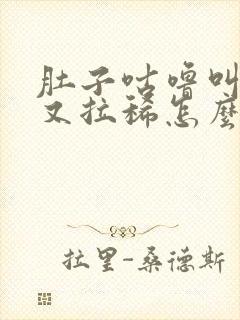 肚子咕噜叫
又拉稀怎麼
拉里-桑德斯